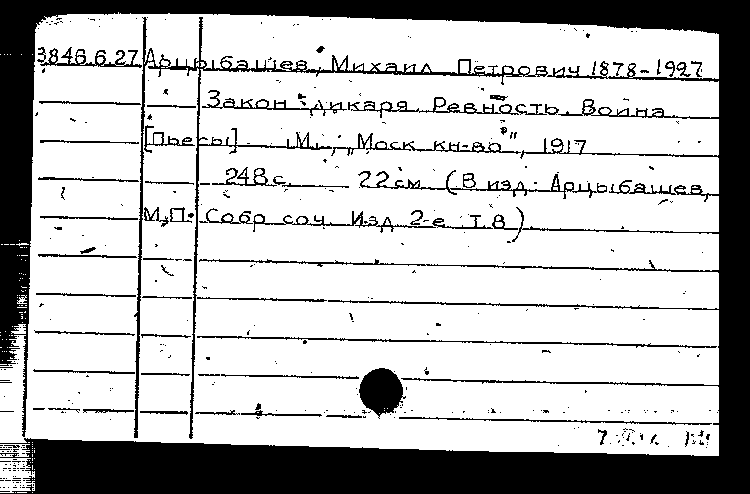 3846.6.27 Арцыбашев, Михаил Петрович 1878-1927
Закон дикаря. Ревность. Война.
[Пьесы] М., "Моск. кн-во", 1917
248 с. 22 см. (В изд: Арцыбашев,
М.П. Собр. соч. Изд. 2-е. Т.8)